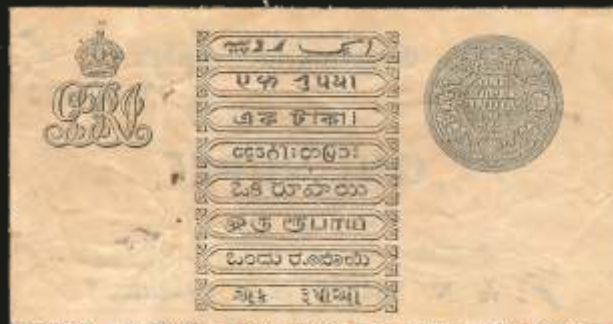 GRI
ایک روپیہ
एक रुपया
এক টাকা।
ఒక రూపాయి
ஒரு ரூபாய்
ಒಂದು ರೂಪಾಯಿ
એક
ONE
RUPEE
INDIA